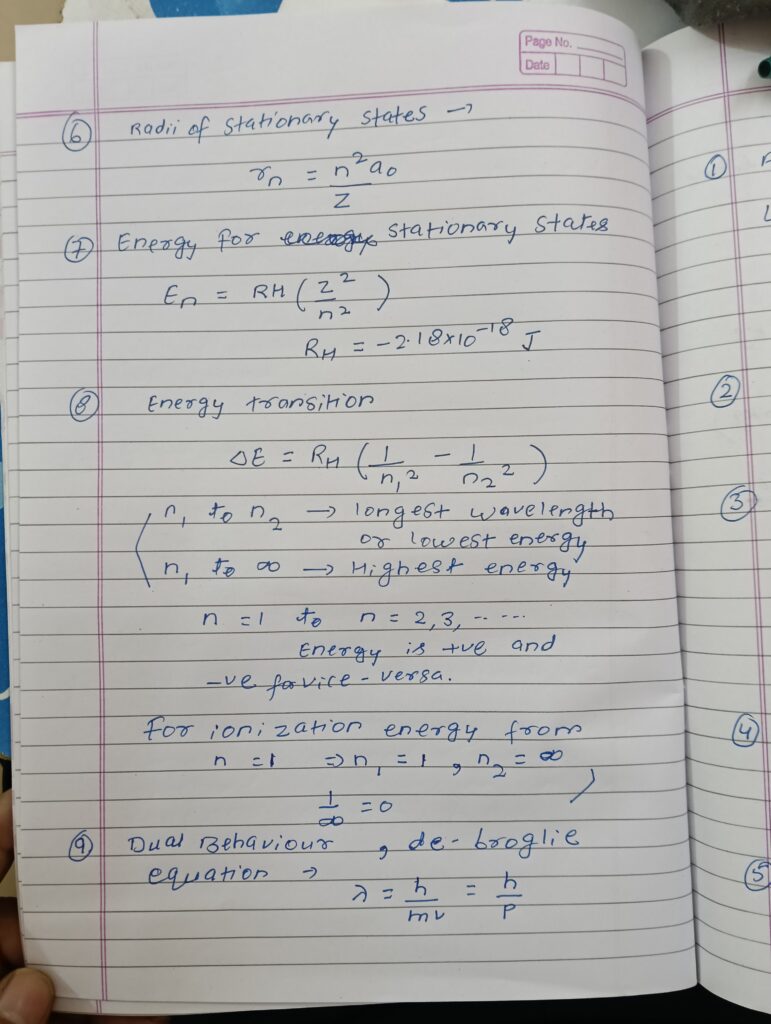 Page No.
Date
⑥ Radii of stationary states →
rₙ = n²a₀ / Z
⑦ Energy for stationary states
Eₙ = RH (Z² / n²)
R_H = -2.18×10⁻¹⁸ J
⑧ Energy transition
ΔE = R_H (1/n₁² - 1/n₂²)
n₁ to n₂ → longest wavelength
or lowest energy
n₁ to ∞ → Highest energy
n = 1 to n = 2, 3, -----
Energy is +ve and
-ve for vice-versa.
For ionization energy from
n = 1 ⇒ n₁ = 1, n₂ = ∞
1/∞ = 0
⑨ Dual Behaviour, de-broglie
equation →
λ = h/mv = h/p
①
②
③
④
⑤